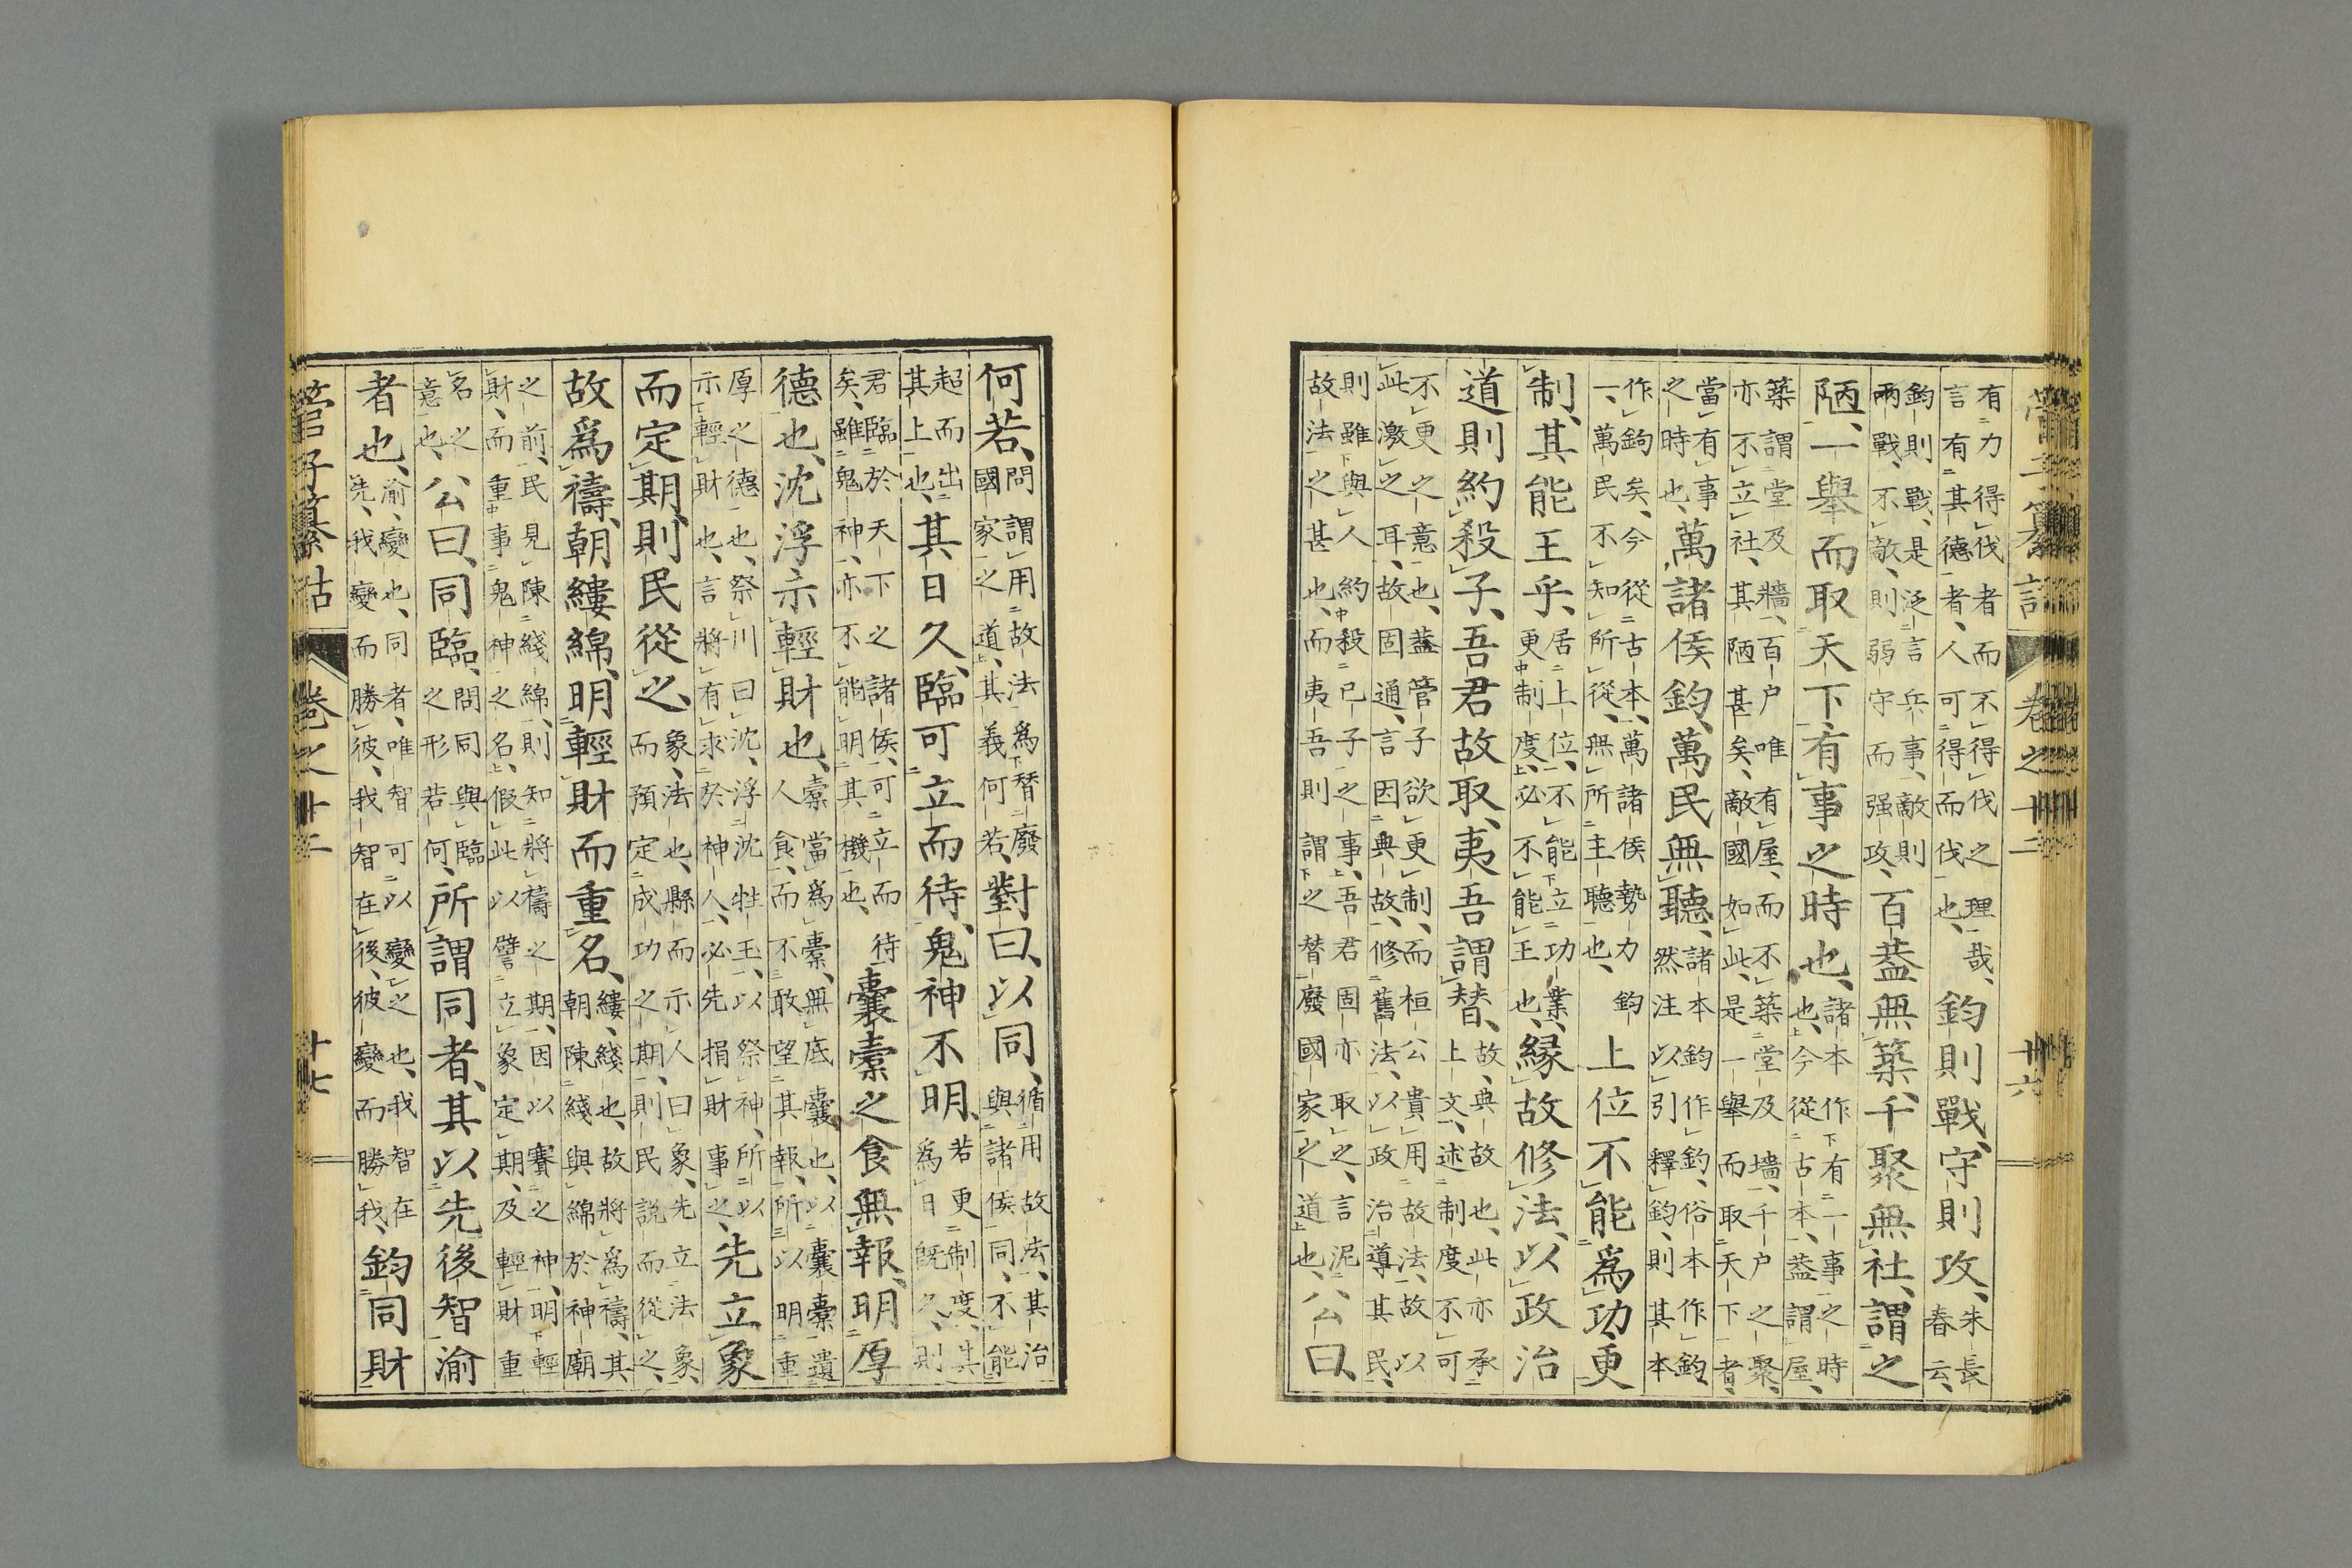 卷之十二 廿六
有力得伐者而不得伐之理哉、
言有其德者、人可得而伐也、
鈞則戰、守則攻、
朱長
春云、
鈞則戰、是泛言兵事、敵則
兩戰、不敵、則弱守而强攻、
百葢無築、千聚無社、謂之
陋、一舉而取天下、有事之時也、
諸本作有事之時
也、今從古本、葢謂屋、
築謂堂及牆、百户唯有屋、而不築堂及墻、千户之聚、
亦不立社、其陋甚矣、敵國如此、是一舉而取天下者、
當有事
之時也、
萬諸侯鈞、萬民無聽、
諸本鈞作鈞、俗本作鈞、
然注以引釋鈞、則其本
作鈞矣、今從古本、萬諸侯勢力鈞
一、萬民不知所從、無所主聽也、
上位不能爲功更
制、其能王乎、
居上位、不能立功業、
更制度、必不能王也、
緣故修法、以政治
道則約殺子、吾君故取、夷吾謂替、
故、典故也、此亦承
上文、述制度不可
不更之意也、葢管子欲更制、而桓公貴用故法、故以
此激之耳、故固通、言因典故、修舊法、以政治導其民、
則雖與人約殺己子之事、吾君固亦取之、言泥
故法之甚也、而夷吾則謂之替廢國家之道也、
公曰、
何若、
問謂用故法爲替廢
國家之道、其義何若、
對曰、以同、
循用故法、其治
與諸侯同、不能
起而出
其上也、
其日久臨、可立而待、鬼神不明、
若更制度、其
爲日既久、則
君臨於天下之諸侯、可立而待
矣、雖鬼神、亦不能明其機也、
囊橐之食無報、明厚
德也、沈浮示輕財也、
橐當爲橐、無底囊也、以囊橐遺
人食、而不敢望其報、所以明重
厚之德也、祭川曰沈、浮沈牲玉、以祭神、所以
示輕財也、言將有求於神人、必先捐財事之、
先立象
而定期、則民從之、
象、法也、縣而示人曰象、先立法象、
而預定成功之期、則民説而從之、
故爲禱、朝縷綿、明輕財而重名、
縷、綫也、故將爲禱、其
朝陳綫與綿於神廟
之前、民見陳綫綿、則知將禱之期、因以賽之神、明輕
財、而重事鬼神之名、假此以譬立象定期、及輕財重
名之
意也、
公曰、同臨、
問同與臨
之形若何、
所謂同者、其以先後智渝
者也、
渝、變也、同者、唯智可以變之也、我智在
先、我變而勝彼、我智在後、彼變而勝我、
鈞同財
管子纂詁 卷之十二 十七